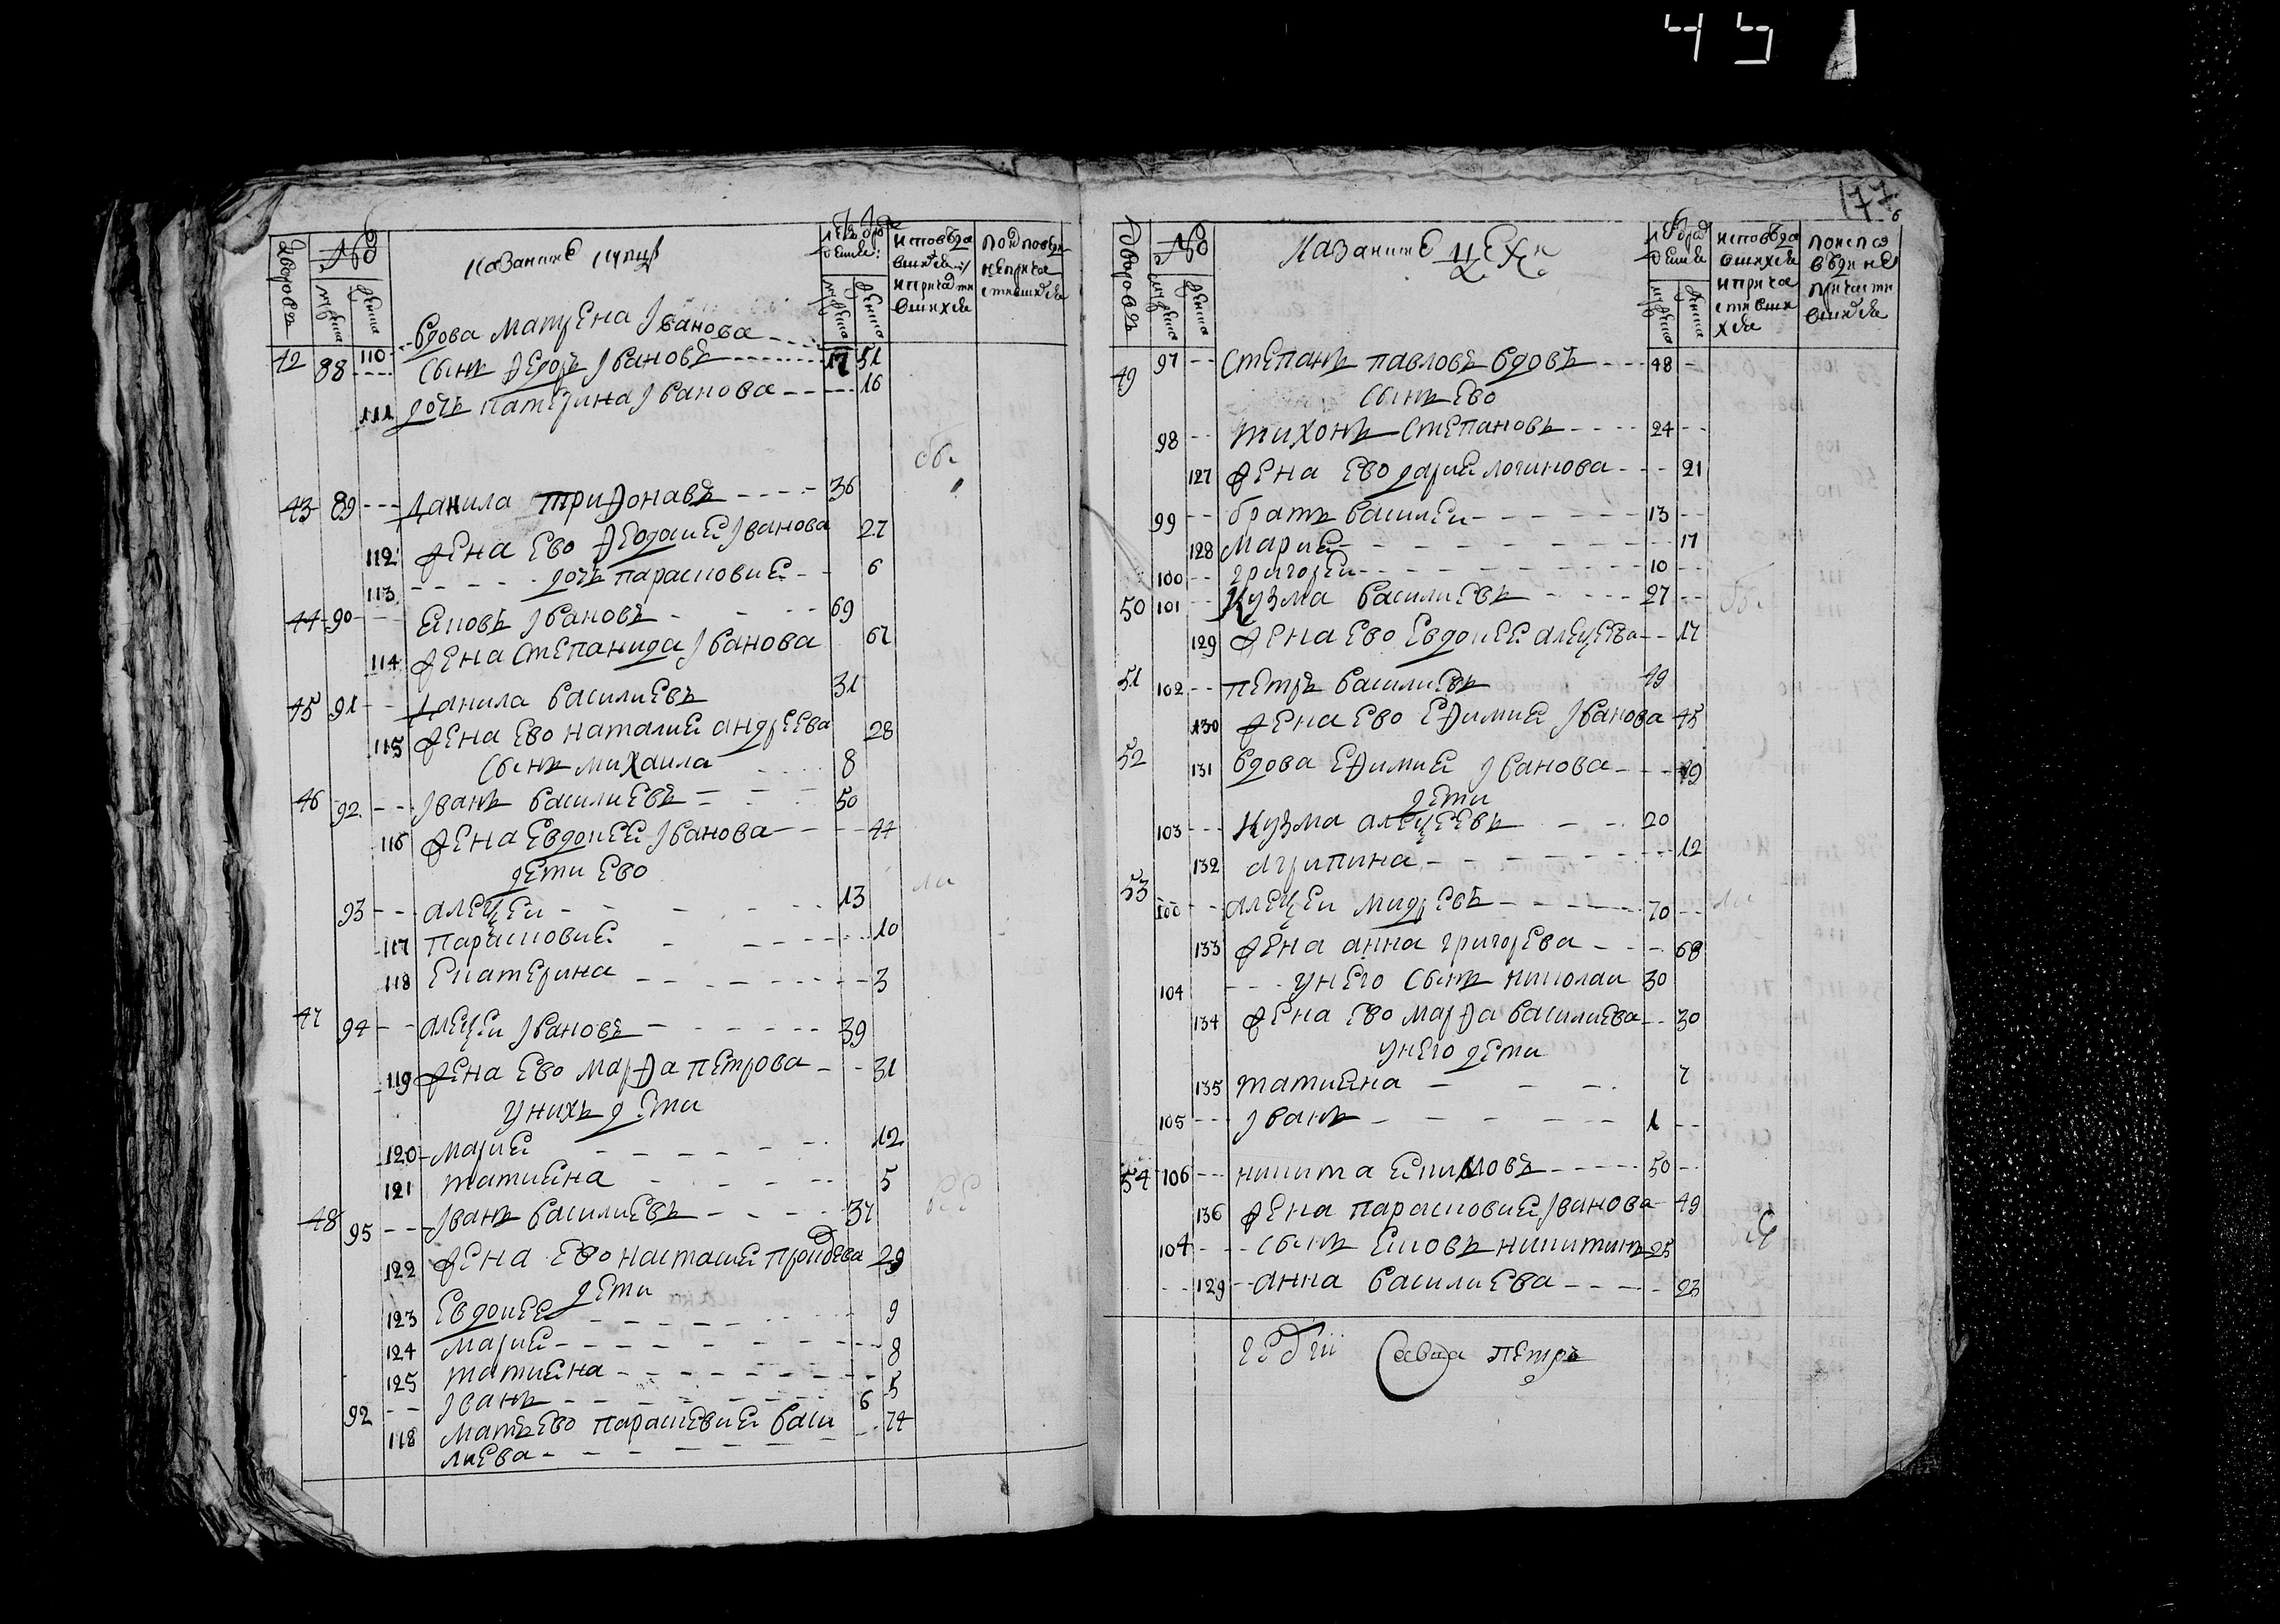 45
177
дворовъ
№
мужеска
женска
казанские купцы
исповеда
вшихся
и причасти
вшихся
мужеска
женска
вдова матрена Iванова
42 88 110 сынъ федоръ Iвановъ 17 51
111 дочь катерина Iванова 16
43 89 данила трифонавъ 36
112 жена ево федосиа Iванова 27
113 дочь парасковиа 6
44 90 аковъ Iвановъ 69
114 жена степанида Iванова 67
45 91 данила василиевъ 31
115 жена ево наталиа андреева 28
сынъ михаила 8
46 92 Iванъ василиевъ 50
116 жена евдокеа Iванова 44
дети ево
93 алеѯеи 13
117 парасковиа 10
118 екатерина 3
47 94 алеѯеи Iвановъ 39
119 жена ево марфа петрова 31
у нихъ дети
120 мариа 12
121 татиана 5
48 95 Iванъ василиевъ 37
122 жена ево настасиа 29
дети
123 евдокеа 9
124 мариа 8
125 татиана 5
92 Iванъ 6
118 мать ево параскевиа васи 74
лиева
дворовъ
№
мужеска
женска
казанские цехи
исповеда
вшихся
и прича
стивши
хся
мужеска
женска
49 97 степанъ павловъ вдовъ 48
сынъ ево
98 тихонъ степановъ 24
127 жена ево дариа логинова 21
99 братъ василеи 13
128 мариа 17
100 григореи 10
50 101 кузма василиевъ 27
129 жена ево евдокеа алеѯева 17
51 102 петръ василиевъ 49
130 жена ево ефимиа Iванова 45
52 131 вдова ефимиа Iванова 49
дети
103 кузма алеѯеевъ 20
132 агрипина 12
53 100 алеѯеи 70
133 жена анна григорева 68
104 у него сынъ николаи 30
134 жена ево марфа василиева 30
у него дети
135 татиана 7
105 Iванъ 1
54 106 никита 50
136 жена парасковиа Iванова 49
104 сынъ аковъ никитинъ 25
129 анна василиева 23
петръ